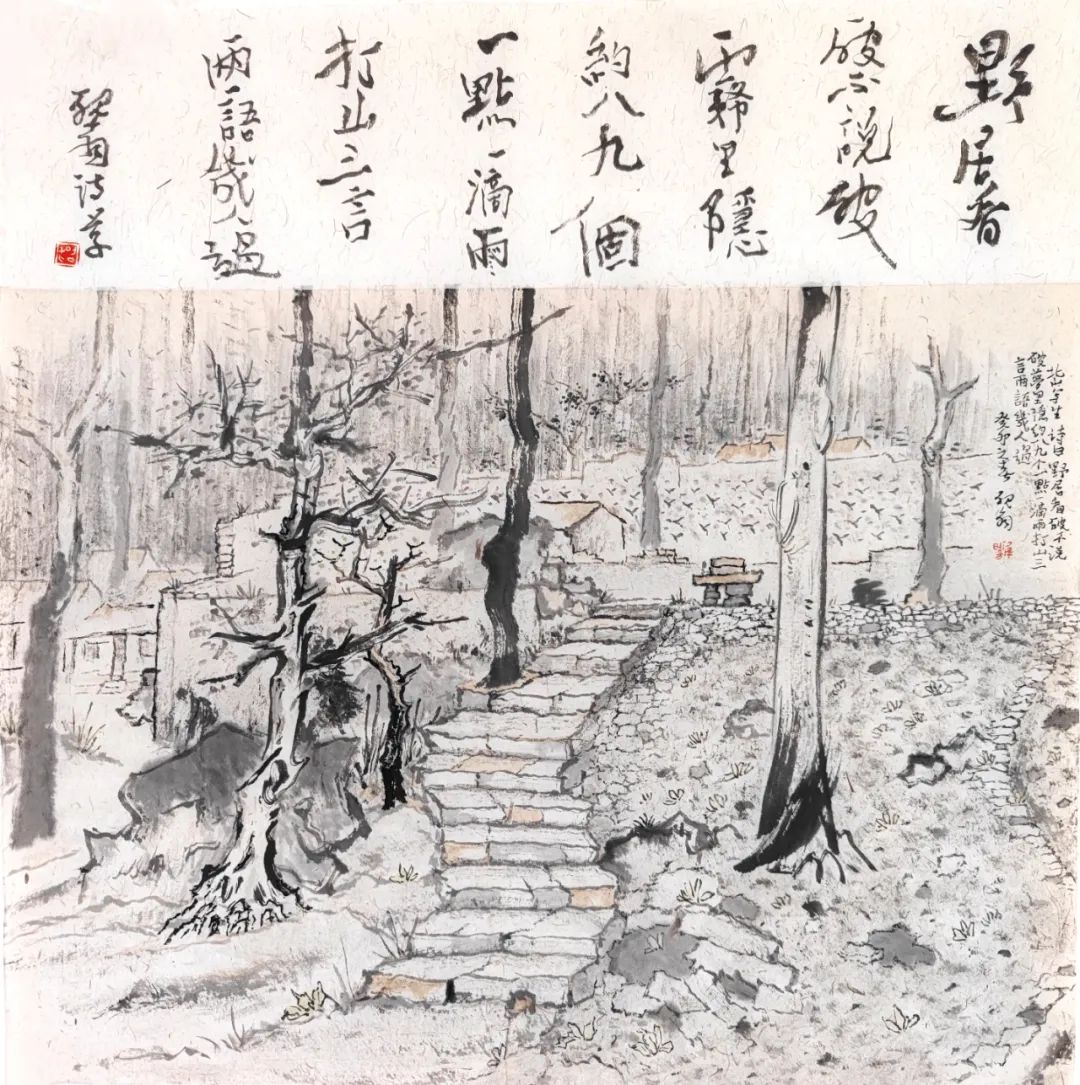 野居看
破不說破
霧里隱
約八九個
一點一滴雨
打山三言
兩語幾人過
詩草
北山生詩曰野居看破不說
破夢里隱約八九个一點滴雨打山三
言兩語幾人過
癸卯之春